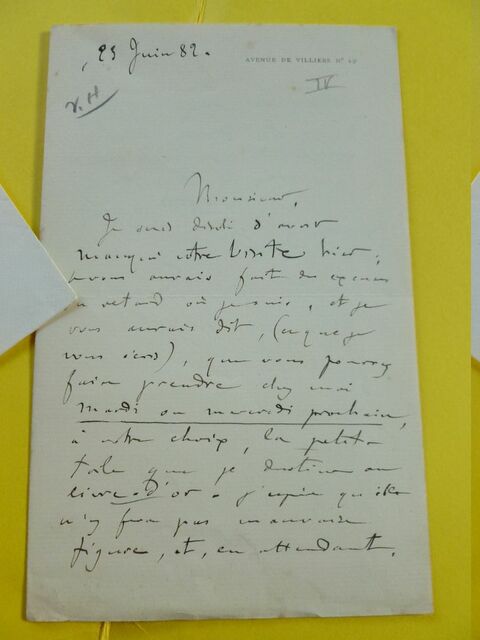 23 Juin 82.
AVENUE DE VILLIERS Nº
V.H
IV
Monsieur,
Je suis désolé d'avoir
manqué votre visite hier,
vous aurais fait des excuses
retard où je suis, et je
vous aurais dit, (ce que je
vous écris), que vous pouvez
faire prendre chez moi
mardi ou mercredi prochain,
à votre choix, la petite
toile que je destine au
livre-d'or. J'espère qu'elle
n'y fera pas mauvaise
figure, et, en attendant,